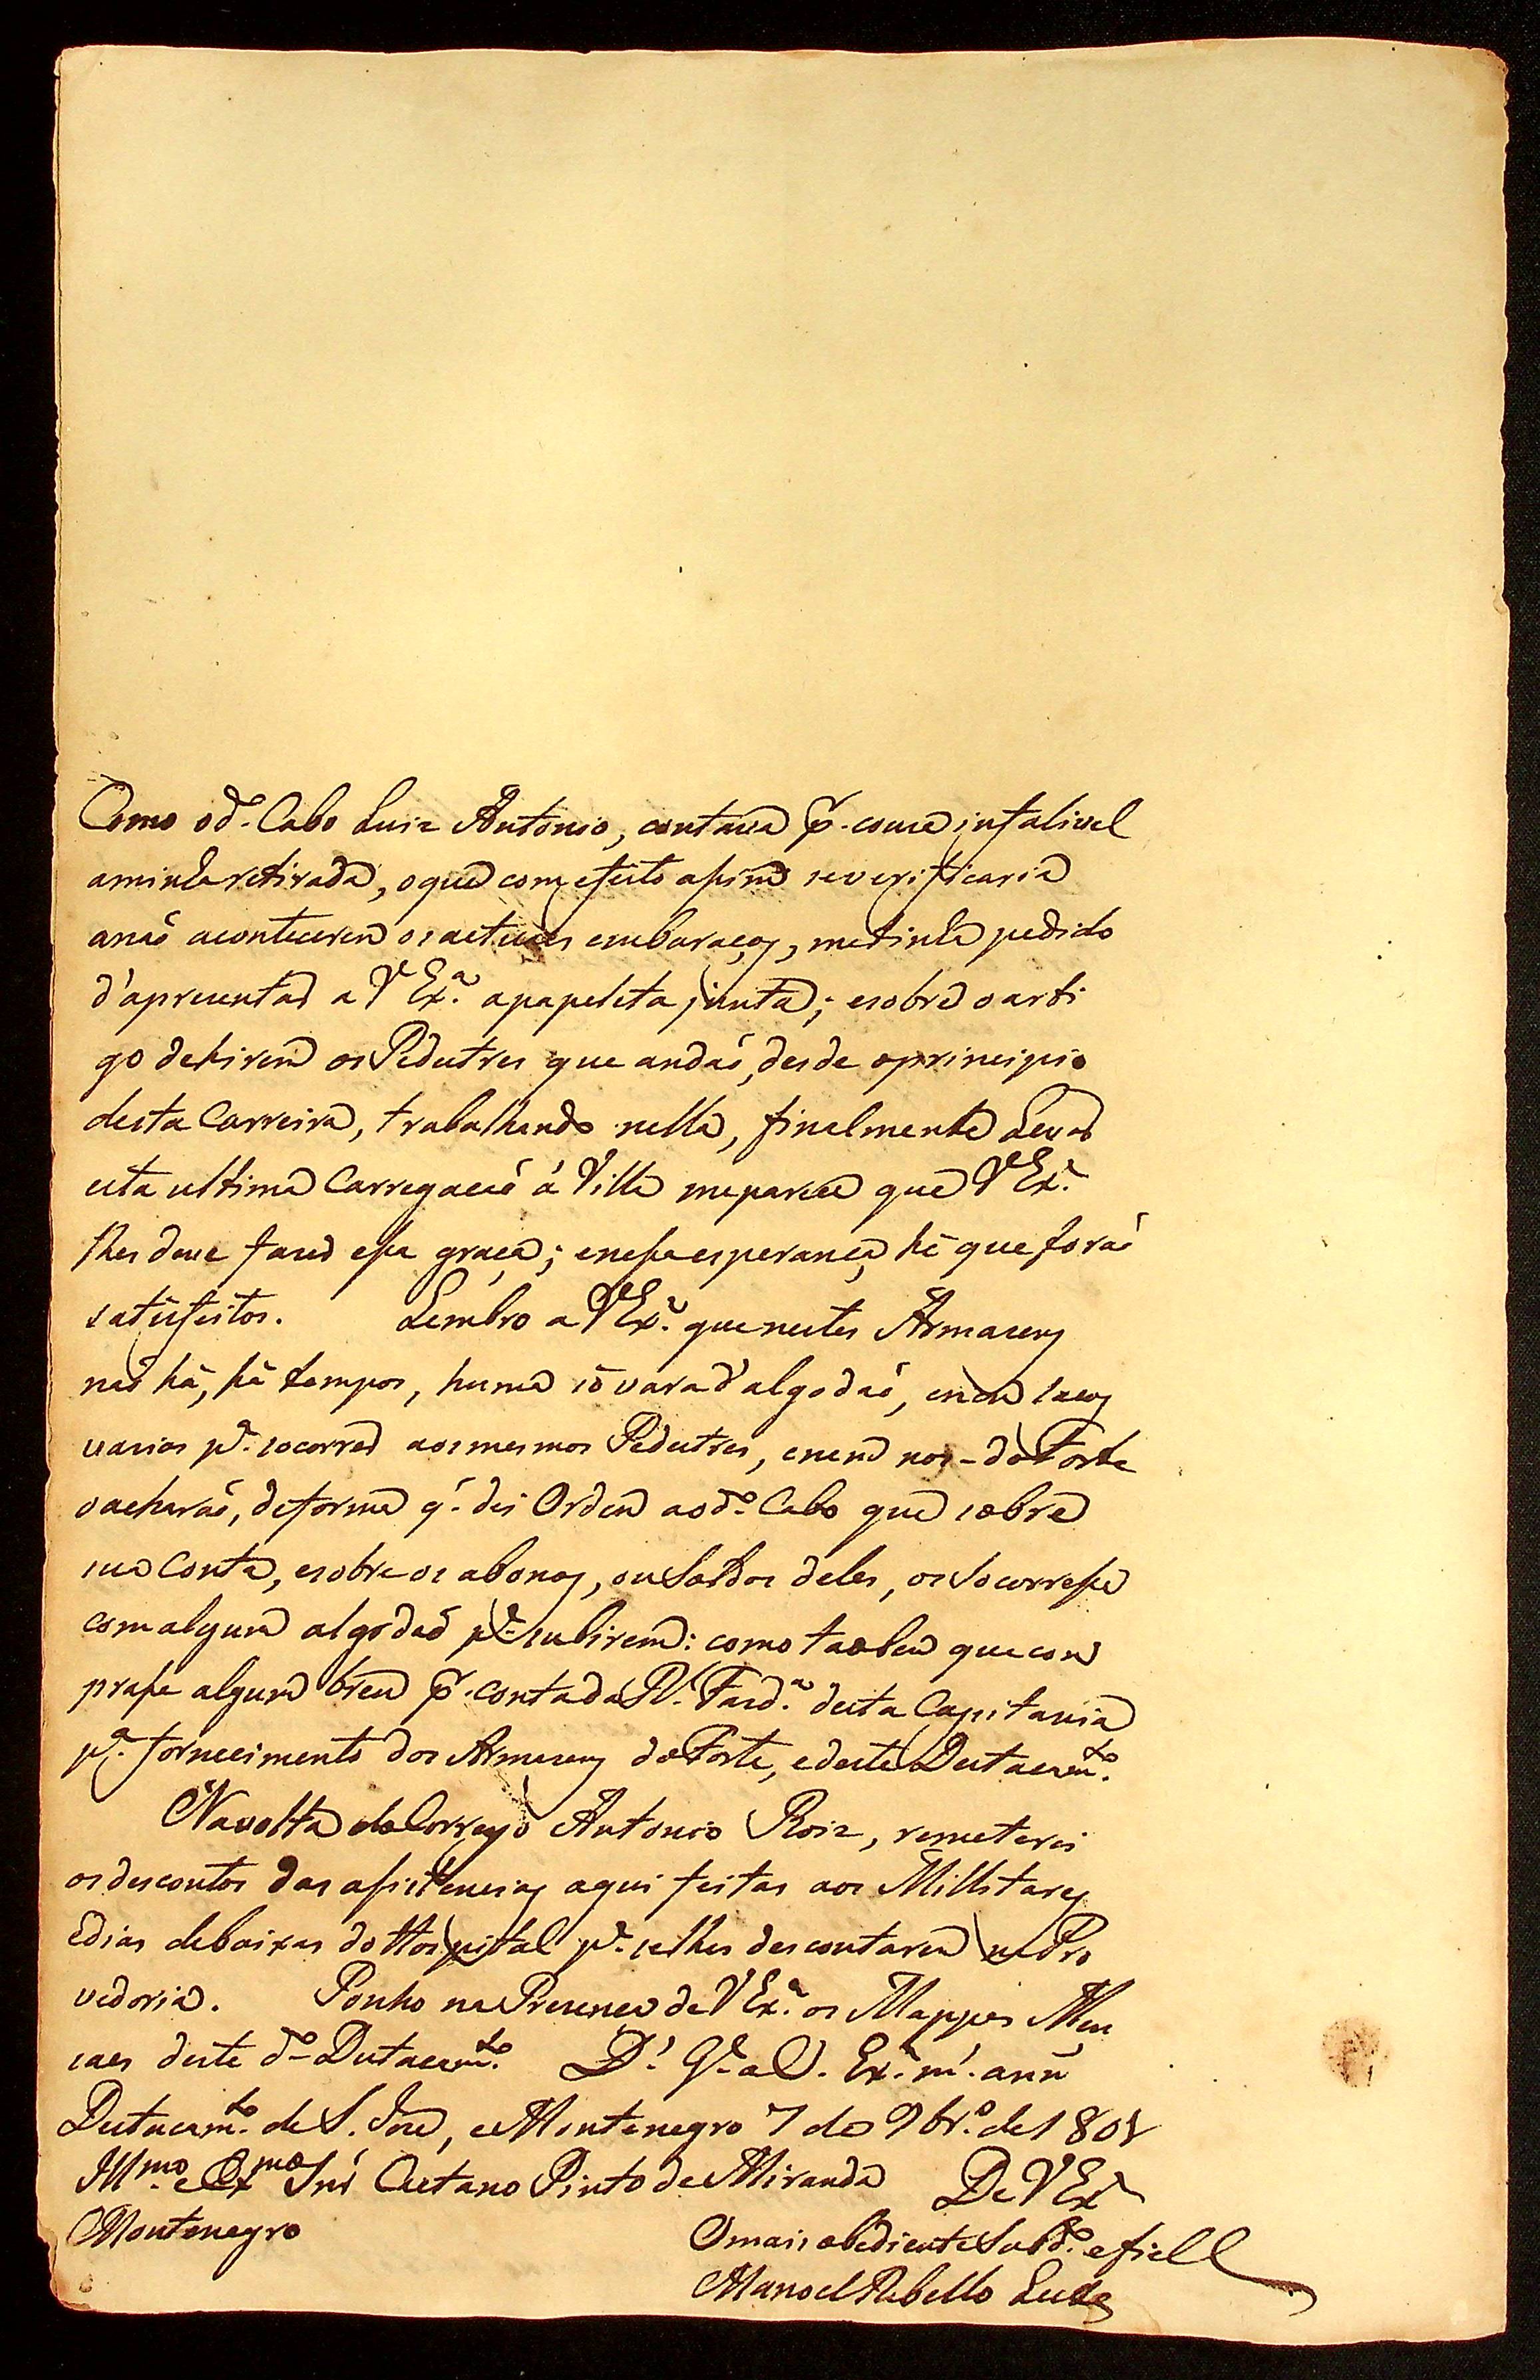 Como o d.º Cabo Luiz Antonio, contava p.r couza infalivel
a minha retirada, o que com efeito assim se verificaria
a naõ acontecerem os actuaes embaraços, me tinha pedido
d'aprezentar a V Ex.ª a papeleta junta; e sobre o arti
go de hirem os Pedestres que andaõ, desde o principio
desta Carreira, trabalhando nella, finalmente Levar
esta ultima Carregacaõ á Villa me parece que V Ex.ª
lhes deve fazer essa graça; e nessa esperança hé que foraõ
satisfeitos. Lembro a V Ex.ª que nestes Armazens
naõ há, há tempos, huma só vara d'algodaõ, e nem sacos
varios p.ª socorrer aos mesmos Pedestres, e nem nos do Forte
o acharaõ, de forma q. dei Ordem ao d.º Cabo que sobre
sua Conta, e sobre os abonos, ou Soldos deles, os Socorresse
com algum algodaõ p.ª subirem: como taobem que com
prasse algum breu p.r conta da R.l Fazd.ª desta Capitania
p.ª fornecimento dos Armazens do Forte, e deste Destacam.to
Na volta do Correyo Antonio Roiz, remeterei
os descontos das assistencias aqui feitas aos Millitares
e dias de baixas do Hospital p.ª se lhes descontarem na Pro
vedoria. Ponho na Prezença de V Ex.ª os Mappas Men
saes deste d.º Destacam.to D.s G.e a V. Ex.ª m.s ann.s
Destacam.to de S. Joze, e Montenegro 7 de 9br.º de 1801
Ill.mo e Ex.mo Snr Caetano Pinto de Miranda De V Ex.ª
Montenegro O mais obediente Subd.º e fiell
Manoel Rebello Leite